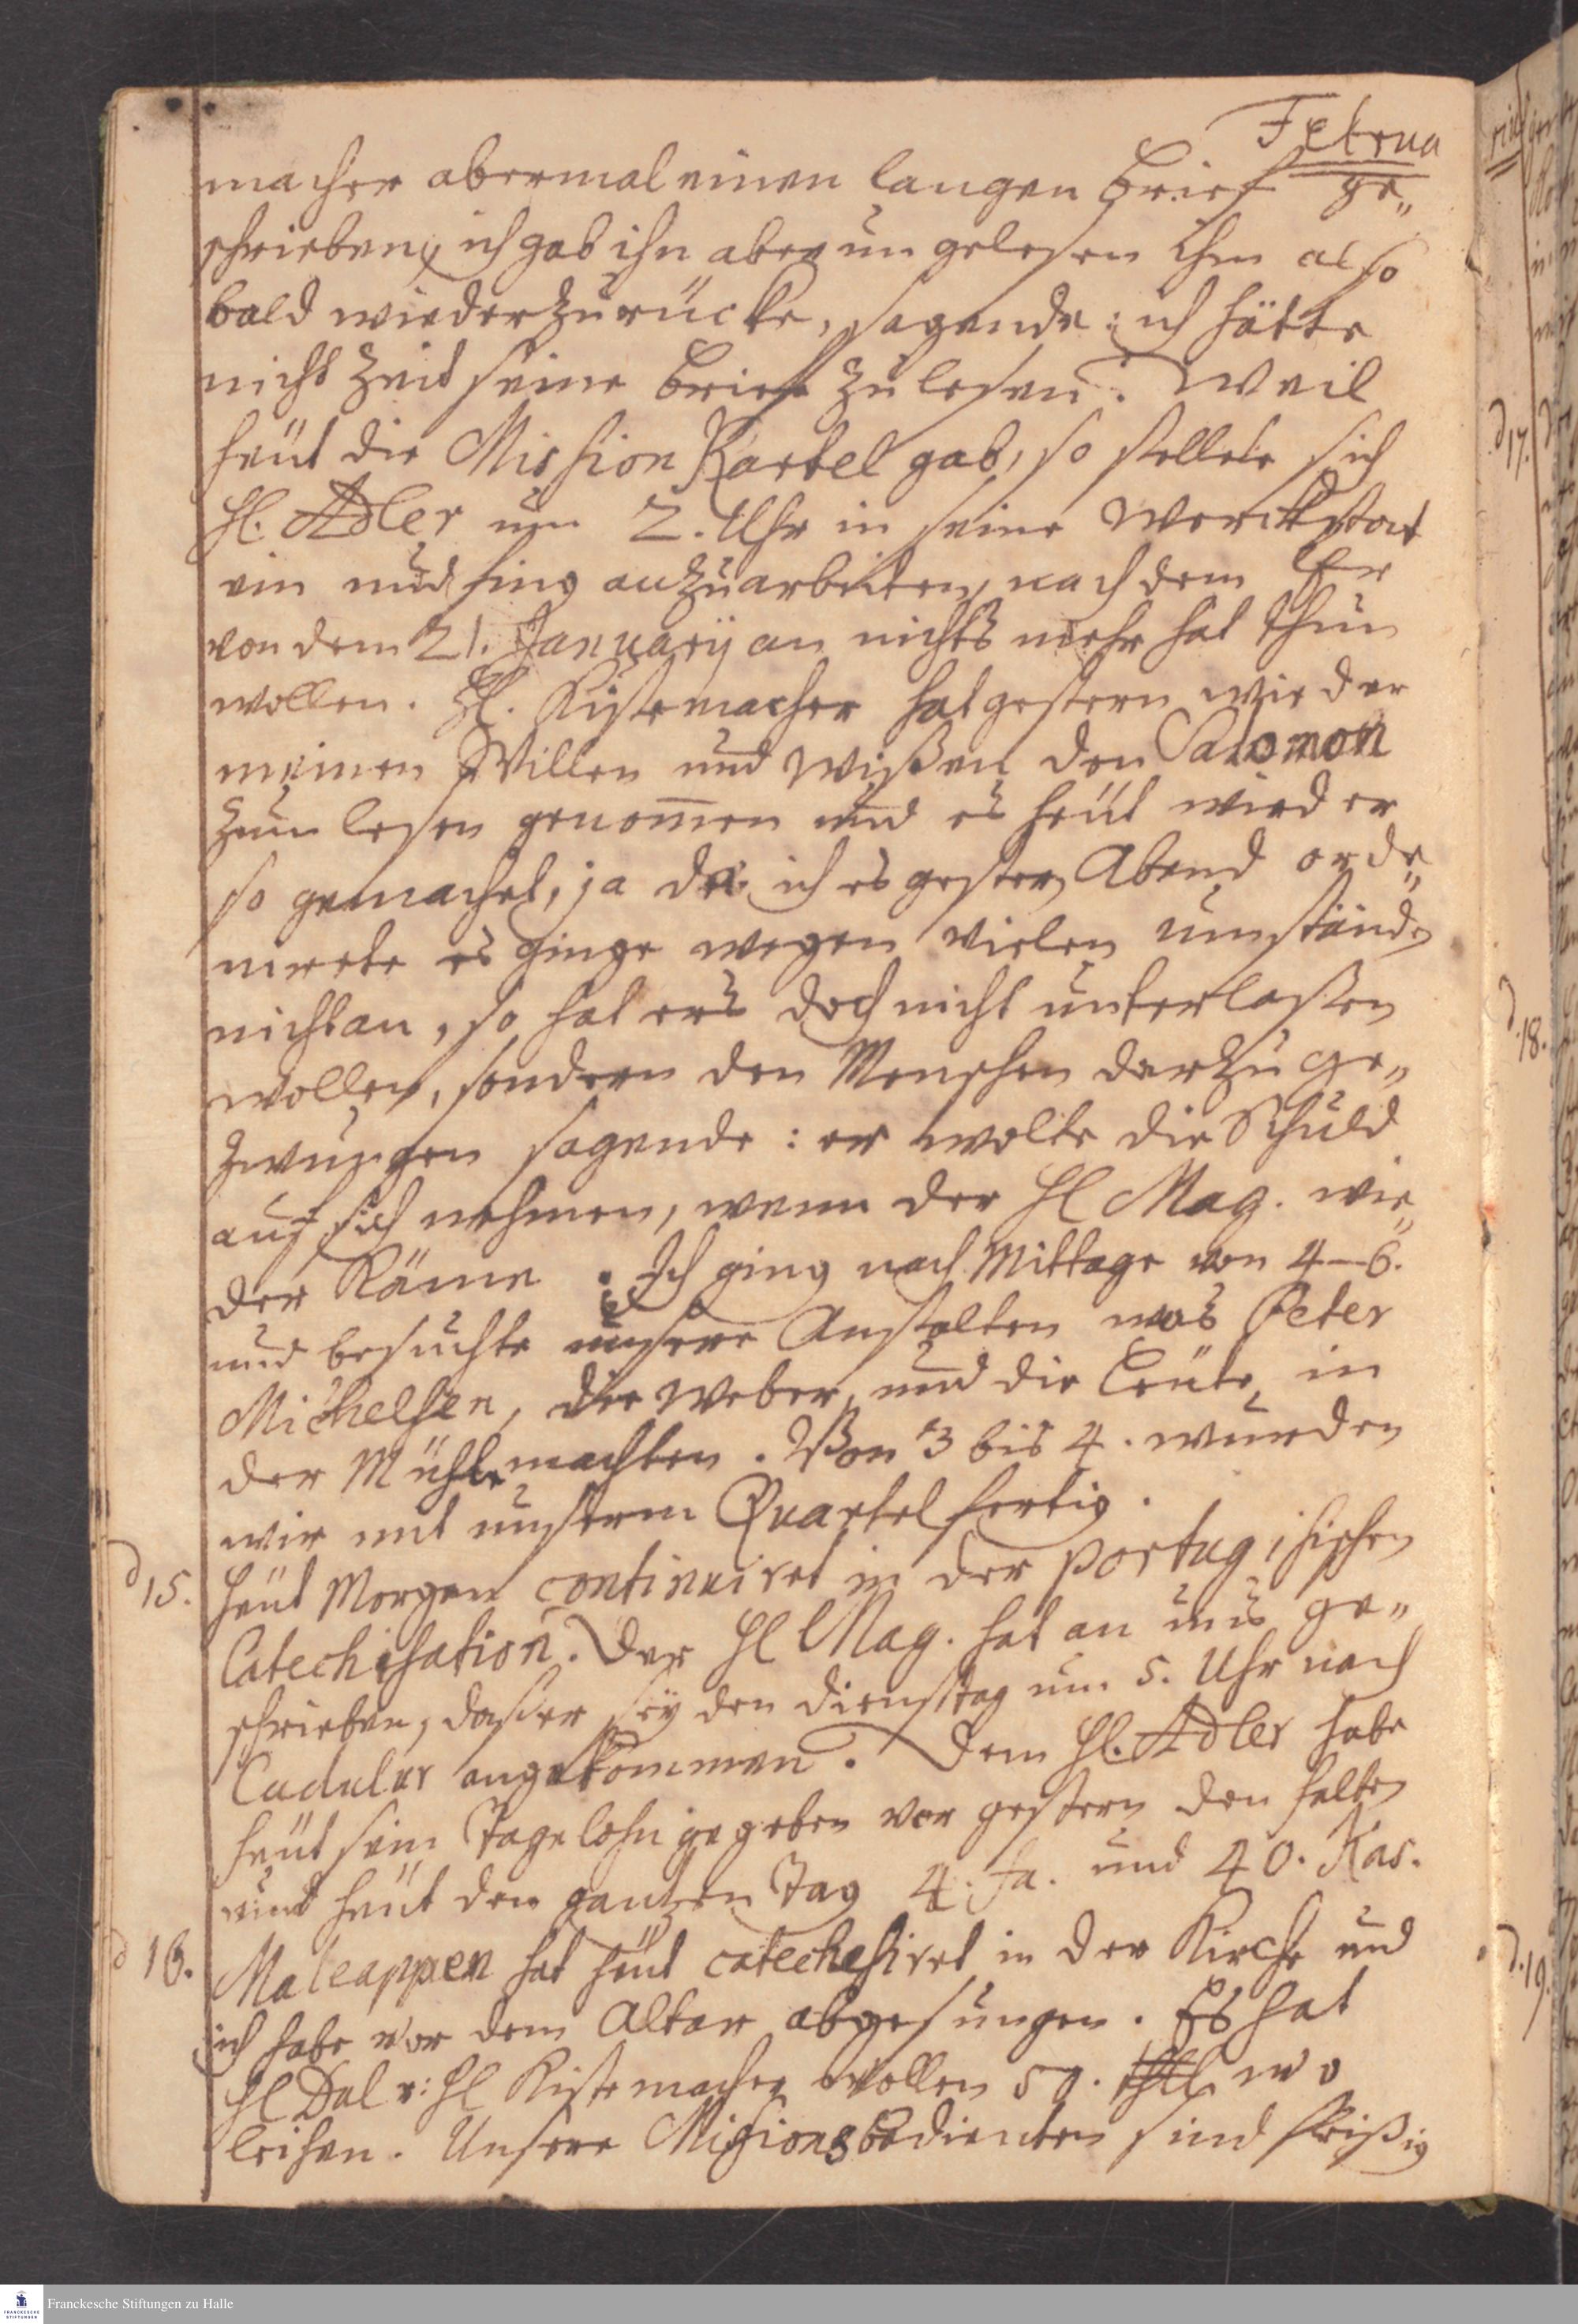 Februa
macher abermal einen langen Brief ge„
schrieben, ich gab ihn aber ungelesen ihm also
bald wieder zurücke, sagende: ich hätte
nicht Zeit seine Briefe zu lesen. Weil
heut die Mission Kartel gab, so stellete sich
H. Adler um 2. Uhr in seine Werckstat
ein und fing an zu arbeiten, nach dem Er
von dem 21. Januarÿ an nichts mehr hat thun
wollen. H. Kistemacher hat gestern wieder
meinen Willen und Wißen den Salomon
zum lesen genom̄en und es heut wieder
so gemachet, ja da ich es gestern Abend orde„
nirete es ginge wegen vielen umständen
nicht an, so hat ers doch nicht unterlaßen
wollen, sondern den Menschen darzu ge„
zwungen sagende: er wolte die Schuld
auf sich nehmen, wenn der H Mag. wie„
der käme. Ich ging nach Mittage von 4–6.
und besuchte unsere Anstalten was Peter
Michelsen, die Weber, und die Leute in
der Mühle machten. Von 3 bis 4. wurden
wir mit unserm Quartel fertig.
d 15. Heut Morgen continuiret in der portugisischen
Catechisation. Der H Mag. hat an uns ge„
schrieben, daß er seÿ den Dienstag um 5. Uhr nach
Cudulur angekommen. Dem H. Adler habe
heut sein Tagelohn gegeben vor gestern den halben
und heut den gantzen Tag 4. fa. und 40. Kas.
d 16. Maleappen hat heut catechesiret in der Kirche und
ich habe vor dem Altar abgesungen. Es hat
H Dal v: H Kistemacher wollen 50. wo
leihen. Unsere Missionsbedienten sind fleißig
d 17.
d. 18.
d. 19.